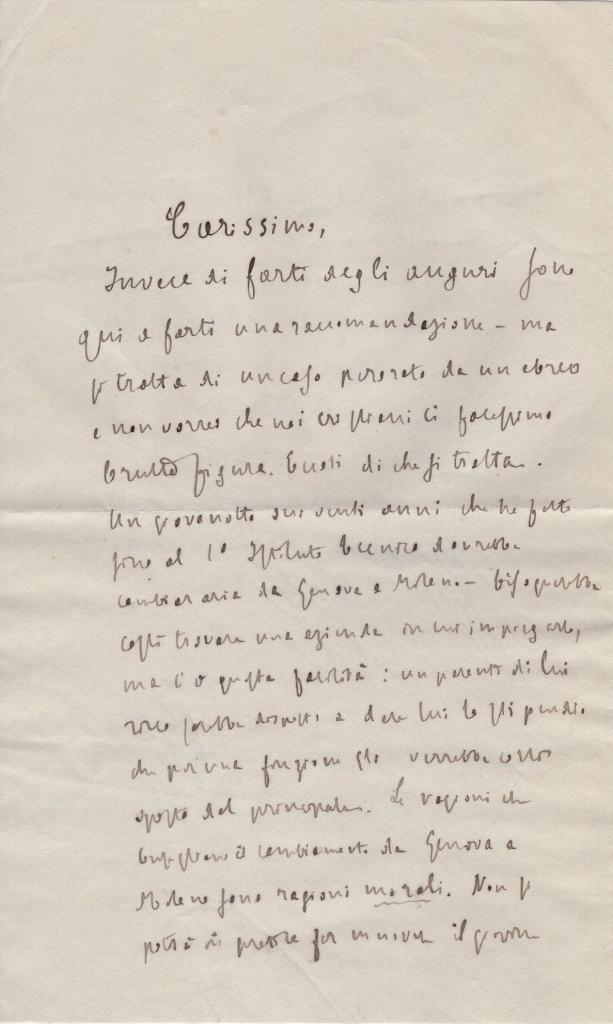 Carissimo,
Invece di farti degli auguri sono
qui a farti una raccomandazione - ma
si tratta di un caso perorato da un ebreo
e non vorrei che noi cristiani ci facessimo
brutta figura. Ecco di che si tratta.
Un giovanotto sui venti anni che ha fatto
fino al 1º Istituto tecnico dovrebbe
cambiar aria da Genova a Modena - bisognerebbe
costì trovare una azienda in cui impiegarlo,
ma c'è questa facilità: un parente di lui
ricco sarebbe disposto a dare lui lo stipendio
che per una finzione gli verrebbe corri
sposto dal principale. Le ragioni che
consigliano il cambiamento da Genova a
Modena sono ragioni morali. Non si
potrà di far muover il giovine